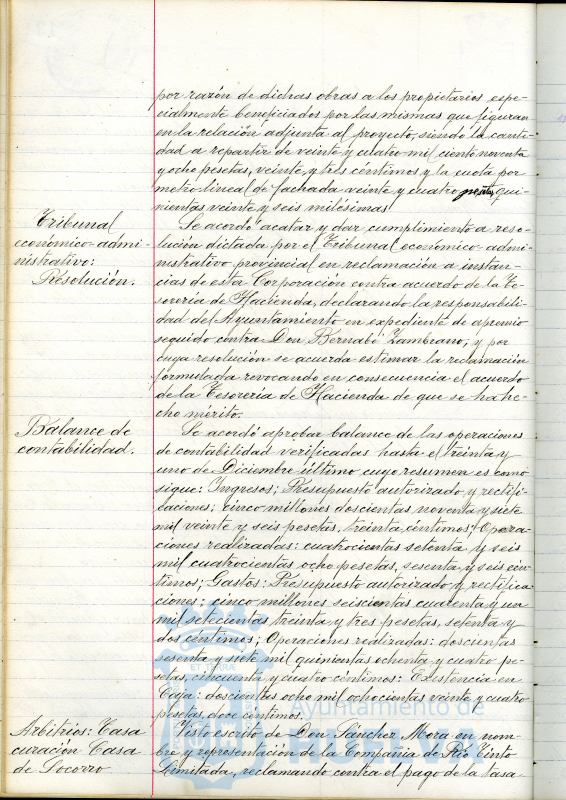 por razón de dichas obras a los propietarios espe-
cialmente beneficiados por las mismas que figuran
en la relación adjunta al proyecto, siendo la canti-
dad a repartir de veinte y cuatro mil ciento noventa
y ocho pesetas, veinte y tres céntimos y la cuota por
metro lineal de fachada veinte y cuatro pesetas, qui-
nientas veinte y seis milésimas
Tribunal
económico-admi-
nistrativo:
Resolución.
Se acordó acatar y dar cumplimiento a reso-
lución dictada por el Tribunal económico-admi-
nistrativo provincial en reclamación a instan-
cias de esta Corporación contra acuerdo de la Te-
sorería de Hacienda, declarando la responsabili-
dad del Ayuntamiento en expediente de apremio
seguido contra Don Bernabé Zambrano, y por
cuya resolución se acuerda estimar la reclamación
formulada revocando en consecuencia el acuerdo
de la Tesorería de Hacienda de que se ha he-
cho mérito.
Balance de
contabilidad.
Se acordó aprobar balance de las operaciones
de contabilidad verificadas hasta el treinta y
uno de Diciembre último cuyo resumen es como
sigue: Ingresos; Presupuesto autorizado y rectifi-
caciones; cinco millones doscientos noventa y siete
mil veinte y seis pesetas, treinta céntimos; Opera-
ciones realizadas: cuatrocientas setenta y seis
mil cuatrocientas ocho pesetas, sesenta y seis cén-
timos; Gastos: Presupuesto autorizado y rectifica-
ciones: cinco millones seiscientas cuarenta y un
mil setecientas treinta y tres pesetas, setenta y
dos céntimos; Operaciones realizadas: doscientas
sesenta y siete mil quinientas ochenta y cuatro pe-
setas, cincuenta y cuatro céntimos: Existencia en
Caja: doscientas ocho mil ochocientas veinte y cuatro
pesetas, doce céntimos.
Arbitrios: Tasa
curación Casa
de Socorro
Visto escrito de Don Sánchez Mora en nom-
bre y representación de la Compañía de Río Tinto
Limitada, reclamando contra el pago de la tasa
Ayuntamiento de